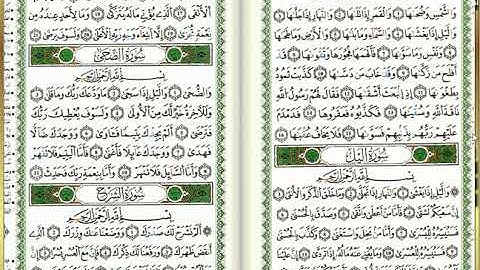 وَٱلشَّمْسِ وَضُحَىٰهَا ١ وَٱلْقَمَرِ إِذَا تَلَىٰهَا ٢ وَٱلنَّهَارِ إِذَا جَلَّىٰهَا ٣
وَٱلَّيْلِ إِذَا يَغْشَىٰهَا ٤ وَٱلسَّمَآءِ وَمَا بَنَىٰهَا ٥ وَٱلْأَرْضِ وَمَا طَحَىٰهَا ٦
وَنَفْسٍ وَمَا سَوَّىٰهَا ٧ فَأَلْهَمَهَا فُجُورَهَا وَتَقْوَىٰهَا ٨ قَدْ
أَفْلَحَ مَن زَكَّىٰهَا ٩ وَقَدْ خَابَ مَن دَسَّىٰهَا ١٠ كَذَّبَتْ ثَمُودُ
بِطَغْوَىٰهَآ ١١ إِذِ ٱنۢبَعَثَ أَشْقَىٰهَا ١٢ فَقَالَ لَهُمْ رَسُولُ ٱللَّهِ
نَاقَةَ ٱللَّهِ وَسُقْيَٰهَا ١٣ فَكَذَّبُوهُ فَعَقَرُوهَا فَدَمْدَمَ
عَلَيْهِمْ رَبُّهُم بِذَنۢبِهِمْ فَسَوَّىٰهَا ١٤ يَخَافُ عُقْبَٰهَا ١٥
سُورَةُ اللَّيْلِ
بِسْمِ ٱللَّهِ ٱلرَّحْمَٰنِ ٱلرَّحِيمِ
وَٱلَّيْلِ إِذَا يَغْشَىٰ ١ وَٱلنَّهَارِ إِذَا تَجَلَّىٰ ٢ وَمَا خَلَقَ ٱلذَّكَرَ وَٱلْأُنثَىٰٓ ٣
إِنَّ سَعْيَكُمْ لَشَتَّىٰ ٤ فَأَمَّا مَنْ أَعْطَىٰ وَٱتَّقَىٰ ٥ وَصَدَّقَ بِٱلْحُسْنَىٰ ٦
فَسَنُيَسِّرُهُۥ لِلْيُسْرَىٰ ٧ وَأَمَّا مَنۢ بَخِلَ وَٱسْتَغْنَىٰ ٨ وَكَذَّبَ بِٱلْحُسْنَىٰ ٩
فَسَنُيَسِّرُهُۥ لِلْعُسْرَىٰ ١٠ وَمَا يُغْنِى عَنْهُ مَالُهُۥٓ إِذَا تَرَدَّىٰٓ ١١ إِنَّ عَلَيْنَا
ٱلْأَتْقَى ١٧ ٱلَّذِى يُؤْتِى مَالَهُۥ يَتَزَكَّىٰ ١٨ وَمَا لِأَحَدٍ عِندَهُۥ مِن
نِّعْمَةٍ تُجْزَىٰٓ ١٩ إِلَّا ٱبْتِغَآءَ وَجْهِ رَبِّهِ ٱلْأَعْلَىٰ ٢٠ وَلَسَوْفَ يَرْضَىٰ ٢١
سُورَةُ الضُّحَىٰ
بِسْمِ ٱللَّهِ ٱلرَّحْمَٰنِ ٱلرَّحِيمِ
وَٱلضُّحَىٰ ١ وَٱلَّيْلِ إِذَا سَجَىٰ ٢ مَا وَدَّعَكَ رَبُّكَ وَمَا قَلَىٰ ٣
وَلَلْءَاخِرَةُ خَيْرٌ لَّكَ مِنَ ٱلْأُولَىٰ ٤ وَلَسَوْفَ يُعْطِيكَ رَبُّكَ
فَتَرْضَىٰٓ ٥ أَلَمْ يَجِدْكَ يَتِيمًا فَـَٔاوَىٰ ٦ وَوَجَدَكَ ضَآلًّا
فَهَدَىٰ ٧ وَوَجَدَكَ عَآئِلًا فَأَغْنَىٰ ٨ فَأَمَّا ٱلْيَتِيمَ فَلَا تَقْهَرْ
٩ وَأَمَّا ٱلسَّآئِلَ فَلَا تَنْهَرْ ١٠ وَأَمَّا بِنِعْمَةِ رَبِّكَ فَحَدِّثْ ١١
سُورَةُ الشَّرْحِ
بِسْمِ ٱللَّهِ ٱلرَّحْمَٰنِ ٱلرَّحِيمِ
أَلَمْ نَشْرَحْ لَكَ صَدْرَكَ ١ وَوَضَعْنَا عَنكَ وِزْرَكَ ٢ ٱلَّذِىٓ
أَنقَضَ ظَهْرَكَ ٣ وَرَفَعْنَا لَكَ ذِكْرَكَ ٤ فَإِنَّ مَعَ ٱلْعُسْرِ يُسْرًا ٥